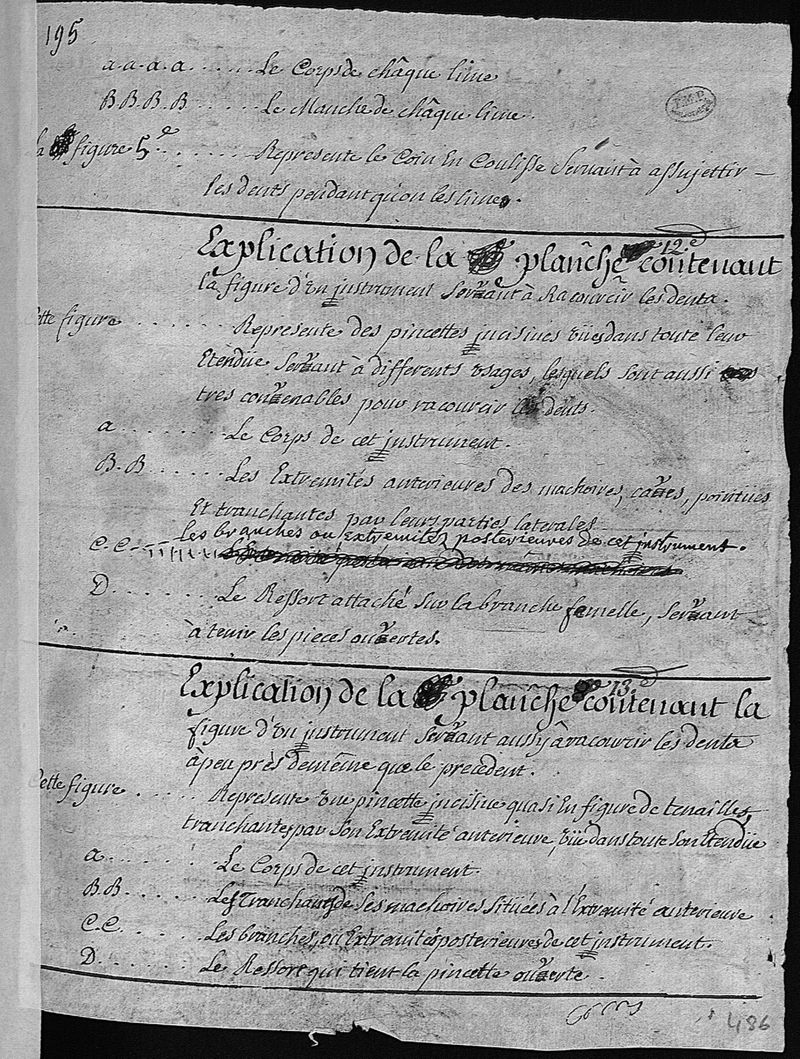 195
a.a.a.a ...... Le Corps de châque lime
B.B.B.B ...... Le Manche de châque lime.
la figure 5e ....... Represente le Coin En Coulisse Servant à assujettir —
les dents pendant qu'on les lime.
Explication de la planche 12e contenant
la figure d'Un instrument Servant à Racourcir les dents.
Cette figure ....... Represente des pincettes incisives vües dans toute leur
Etendüe Servant à differents Usages, lesquels sont aussi
tres convenables pour racourcir les dents.
a ........ Le Corps de cet instrument.
B.B ...... Les Extremités anterieures des machoires, caves, pointües
Et tranchantes par leurs parties laterales
C.C. ...... les branches ou extremités posterieures de cet instrument.
D ........ Le Ressort attaché sur la branche femelle, servant
à tenir les pieces ouvertes.
Explication de la planche 13e contenant la
figure d'Un instrument Servant aussy à racourcir les dents
à peu près de même que le precedent.
Cette figure ..... Represente Une pincette incisive quasi En figure de tenailles,
tranchantes par son Extremité anterieure, vüe dans toute son Etendüe
a ........ Le Corps de cet instrument.
B.B ....... Les Tranchants de ses machoires Situées à l'Extremité anterieure
C.C. ....... Les branches, ou Extremités posterieures de cet instrument.
D ....... Le Ressort qui tient la pincette ouverte.
486